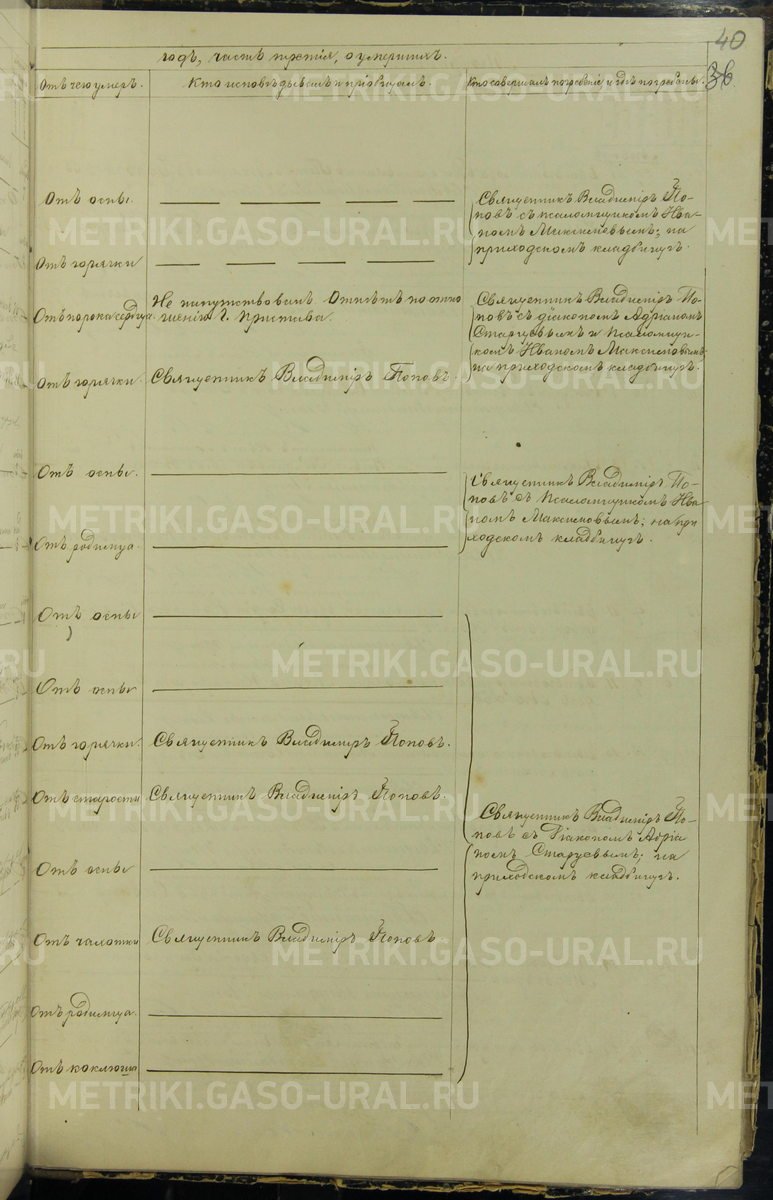 40
36
годъ, часть третія, о умершихъ.
Отъ чего умеръ.
Кто исповѣдывалъ и пріобщалъ.
Кто совершалъ погребеніе и гдѣ погребены.
Отъ оспы.
Священникъ Владиміръ По-
повъ съ псаломщикомъ Ива-
номъ Максимовымъ; на
приходскомъ кладбищѣ.
Отъ горячки
Отъ порока сердца.
Не напутствованъ. Отпѣтъ по отно-
шенію Г. Пристава.
Священникъ Владиміръ По-
повъ съ діакономъ Адріаномъ
Старцевымъ и Псаломщи-
комъ Иваномъ Максимовымъ
на приходскомъ кладбищѣ.
Отъ горячки.
Священникъ Владиміръ Поповъ.
Отъ оспы
Священникъ Владиміръ По-
повъ съ Псаломщикомъ Ива-
номъ Максимовымъ; на при
ходскомъ кладбищѣ.
Отъ родимца.
Отъ оспы
Отъ оспы
Отъ горячки.
Священникъ Владиміръ Поповъ.
Отъ старости
Священникъ Владиміръ Поповъ.
Священникъ Владиміръ По-
повъ съ Діакономъ Адріа
номъ Старцевымъ; на
приходскомъ кладбищѣ.
Отъ оспы
Отъ чахотки
Священникъ Владиміръ Поповъ
Отъ родимца.
Отъ коклюша
METRIKI.GASO-URAL.RU